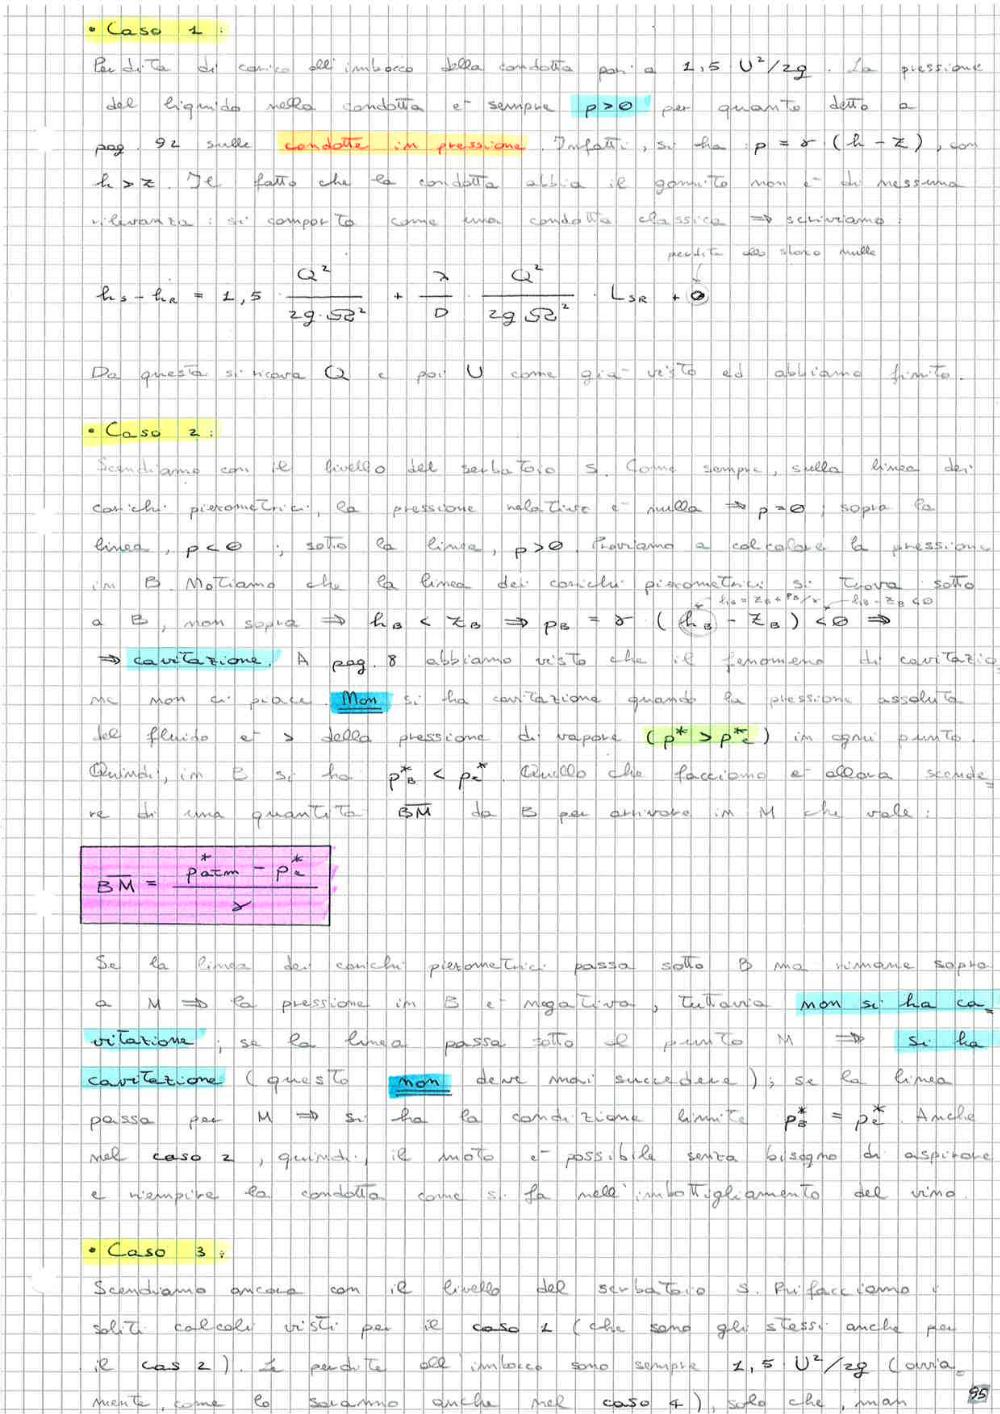 • Caso 1:
Perdita di carico all'imbocco della condotta pari a 1,5 U²/2g. La pressione
del liquido nella condotta è sempre p>0 per quanto detto a
pag. 92 sulle condotte in pressione. Infatti, si ha p = γ · (h - z), con
h > z. Il fatto che la condotta abbia il gomito non è di nessuna
rilevanza: si comporta come una condotta classica ⇒ scriviamo:
perdita allo sbocco nulla
hS - hR = 1,5 · Q²/2g·Ω² + λ/D · Q²/2g Ω² · LSR + 0
Da questa si ricava Q e poi U come già visto ed abbiamo finito.
• Caso 2:
Scendiamo con il livello del serbatoio S. Come sempre, sulla linea dei
carichi piezometrici, la pressione relativa è nulla ⇒ p=0; sopra la
linea, p<0; sotto la linea, p>0. Proviamo a calcolare la pressione
in B. Notiamo che la linea dei carichi piezometrici si trova sotto
hB = zB + pB/γ hB - zB < 0
a B, non sopra ⇒ hB < zB ⇒ pB = γ · (hB - zB) < 0 ⇒
⇒ cavitazione. A pag. 8 abbiamo visto che il fenomeno di cavitazio_
ne non ci piace. Non si ha cavitazione quando la pressione assoluta
del fluido è > della pressione di vapore (p* > p*e) in ogni punto.
Quindi, in B si ha p*B < p*e. Quello che facciamo è allora scende_
re di una quantità BM da B per arrivare in M che vale:
BM = p*atm - p*e / γ
Se la linea dei carichi piezometrici passa sotto B ma rimane sopra
a M ⇒ la pressione in B è negativa, tuttavia non si ha ca_
vitazione; se la linea passa sotto al punto M ⇒ si ha
cavitazione (questo non deve mai succedere); se la linea
passa per M ⇒ si ha la condizione limite p*B = p*e. Anche
nel caso 2, quindi, il moto è possibile senza bisogno di aspirare
e riempire la condotta come si fa nell'imbottigliamento del vino.
• Caso 3:
Scendiamo ancora con il livello del serbatoio S. Rifacciamo i
soliti calcoli visti per il caso 1 (che sono gli stessi anche per
il cas 2). Le perdite all'imbocco sono sempre 1,5 U²/2g (ovvia_
mente, come lo saranno anche nel caso 4), solo che, man
95